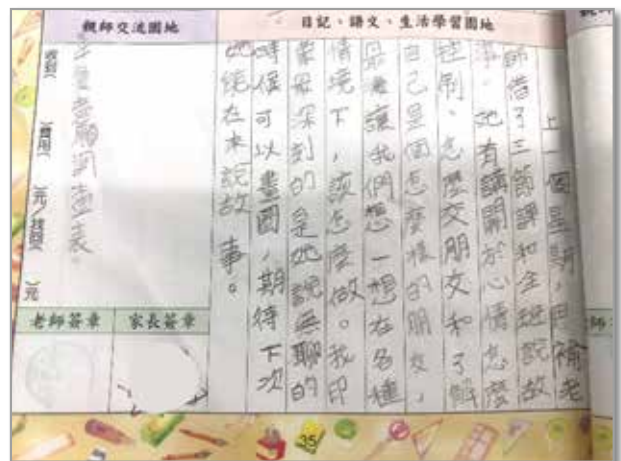 親師交流園地
日記、語文、生活學習園地
上一個星期,輔老
師借了三節課和全班說故
事。她有講開於心情怎麼
控制、怎麼交朋友和了解
自己是個怎麼樣的朋友,
最後讓我們想一想在各種
情境下,該怎麼做。我印
象最深刻的是她說無聊的
時候可以畫圖,期待下次
她繞在來說故事。
意願調查表。
收到( )費用( )元/找錢( )元
老師簽章
家長簽章
35